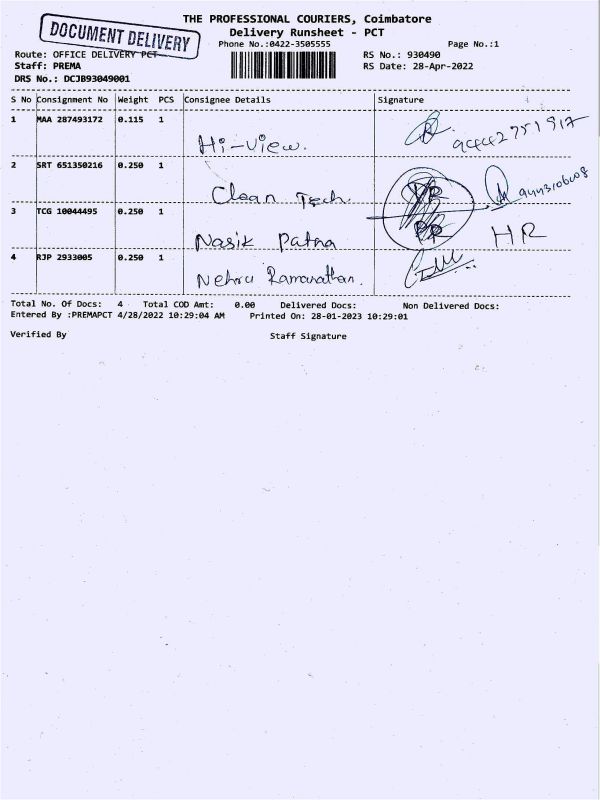 THE PROFESSIONAL COURIERS, Coimbatore
DOCUMENT DELIVERY
Delivery Runsheet - PCT
Phone No.:0422-3505555 Page No.:1
Route: OFFICE DELIVERY PCT RS No.: 930490
Staff: PREMA RS Date: 28-Apr-2022
DRS No.: DCJB93049001
S No Consignment No Weight PCS Consignee Details Signature
1 MAA 287493172 0.115 1
Hi-View.
2 SRT 651350216 0.250 1
Clean Tech.
3 TCG 10044495 0.250 1
Nasik Patna HR
4 RJP 2933005 0.250 1
Nehru Ramanathan.
Total No. Of Docs: 4 Total COD Amt: 0.00 Delivered Docs: Non Delivered Docs:
Entered By :PREMAPCT 4/28/2022 10:29:04 AM Printed On: 28-01-2023 10:29:01
Verified By Staff Signature